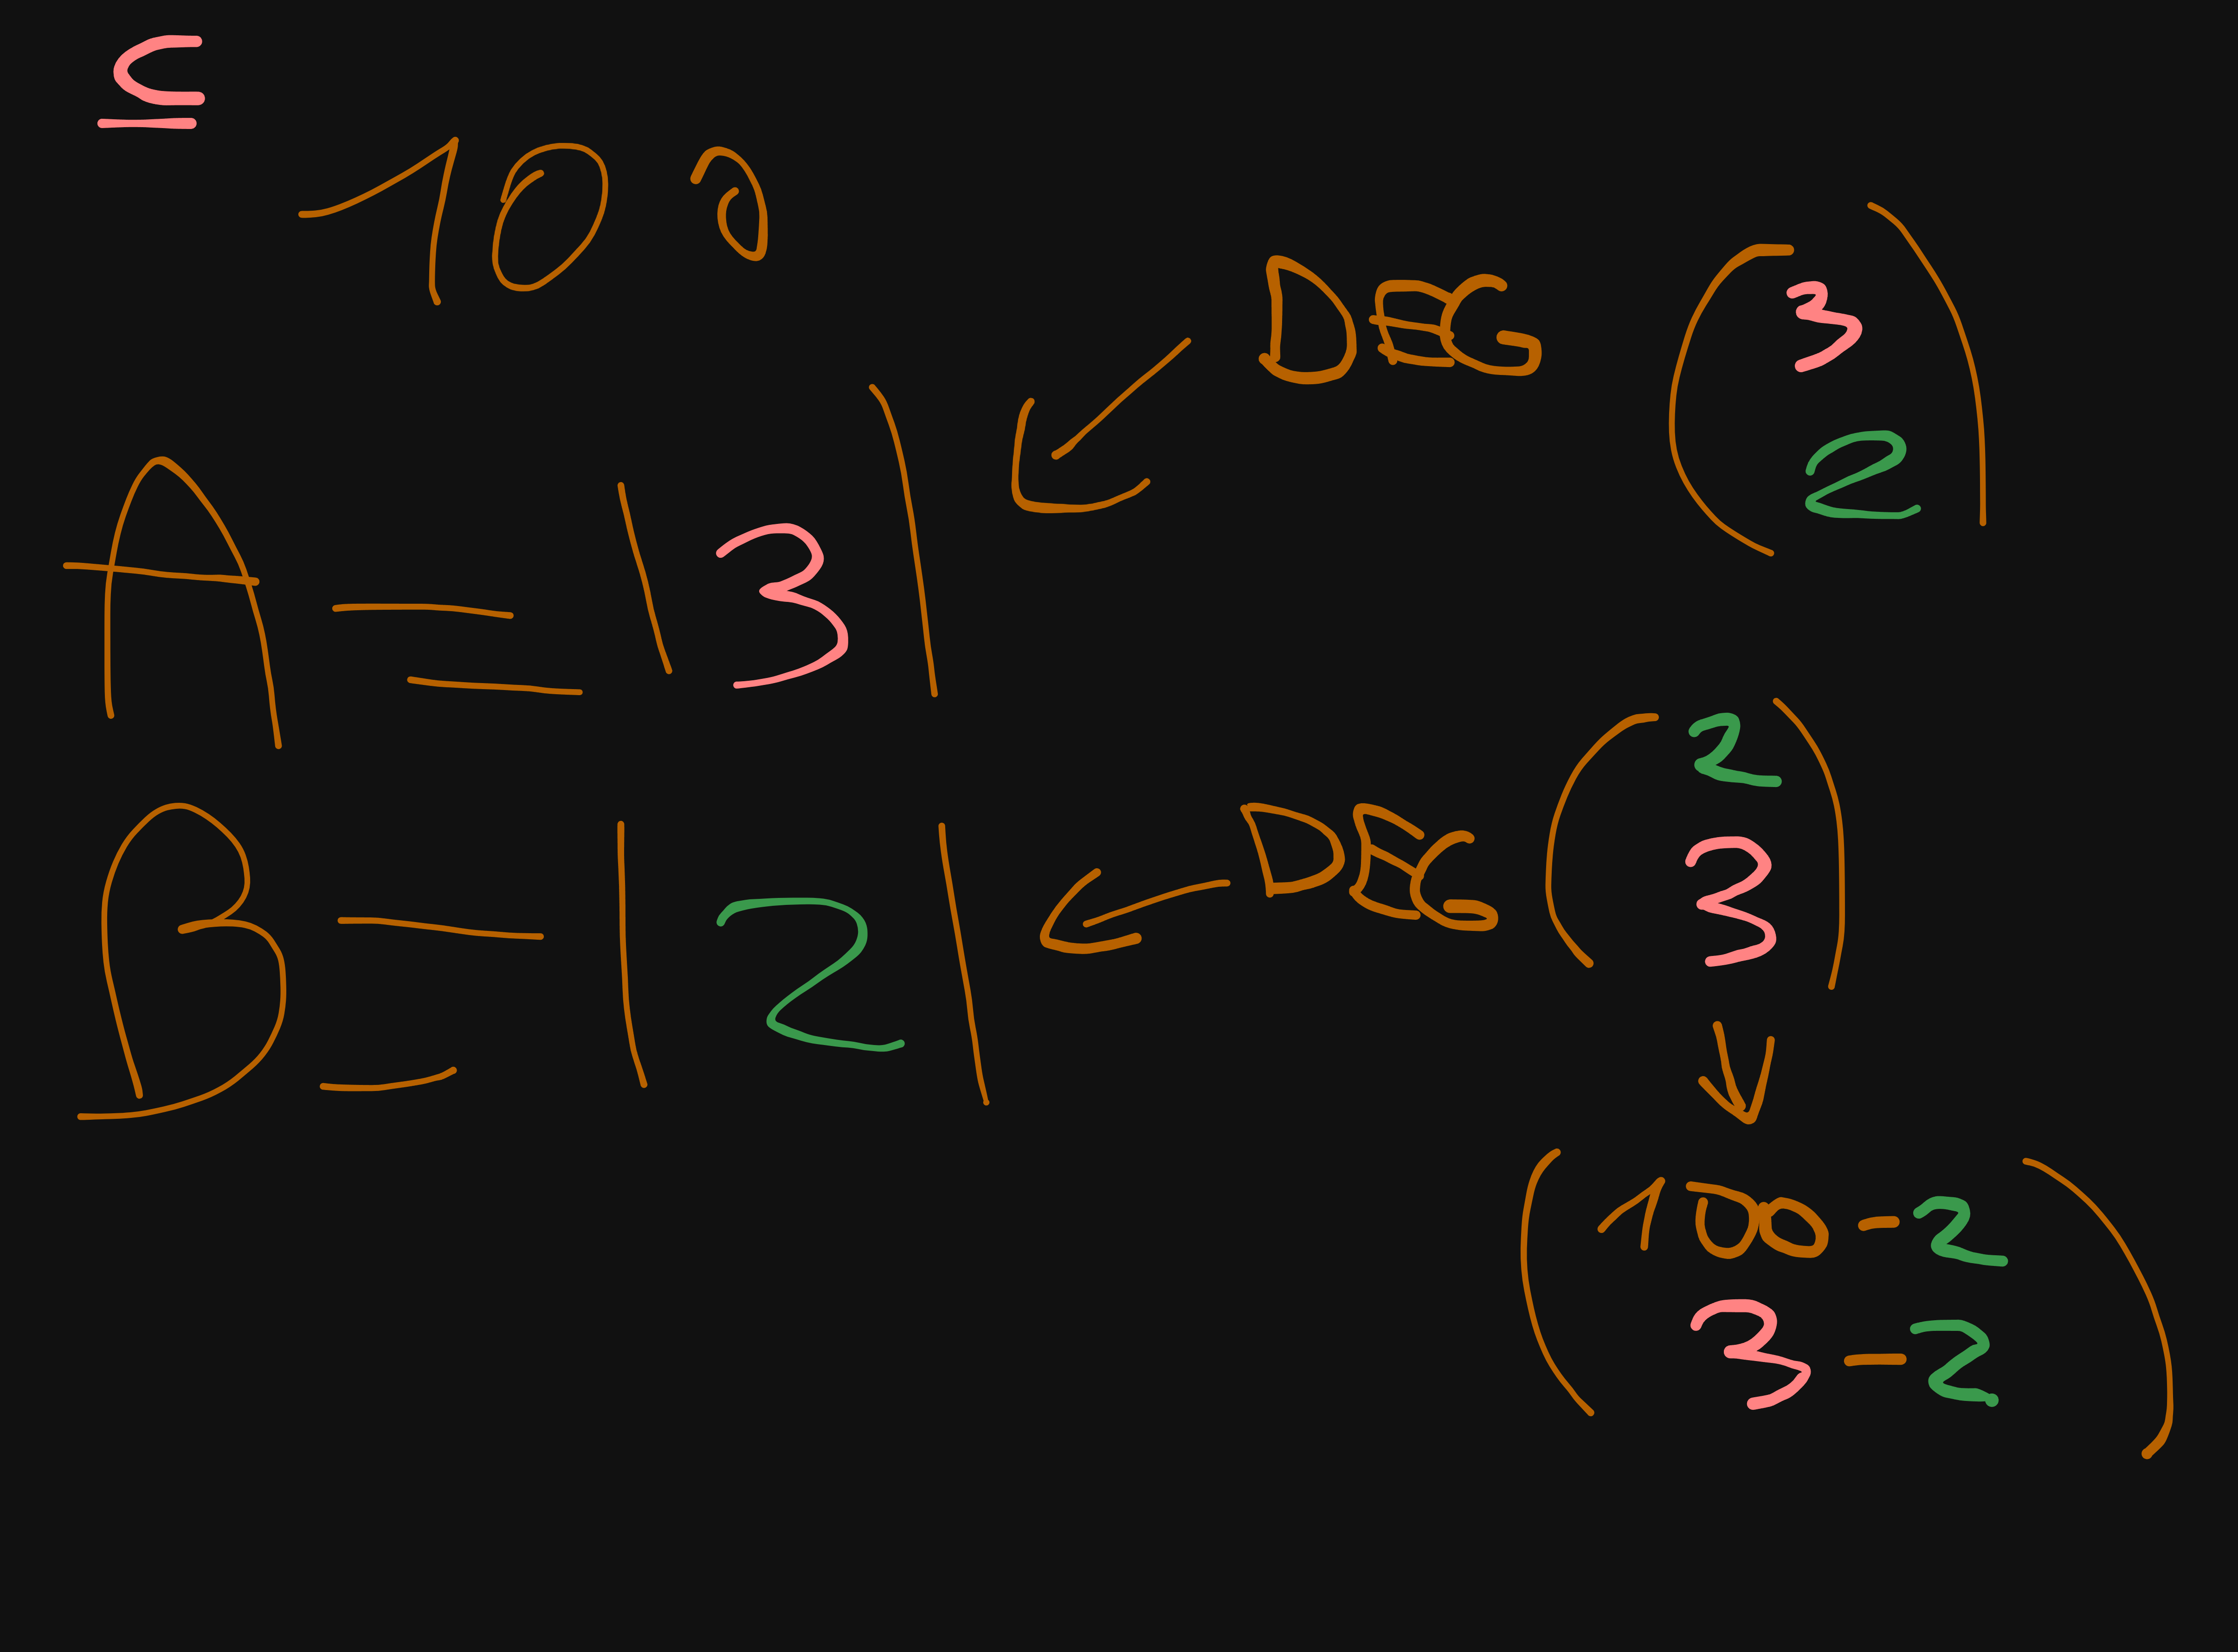 ⊆
100
A = |3| ← DEG (3
2)
B = |2| ← DEG (2
3)
↓
(100 - 2
3 - 2)